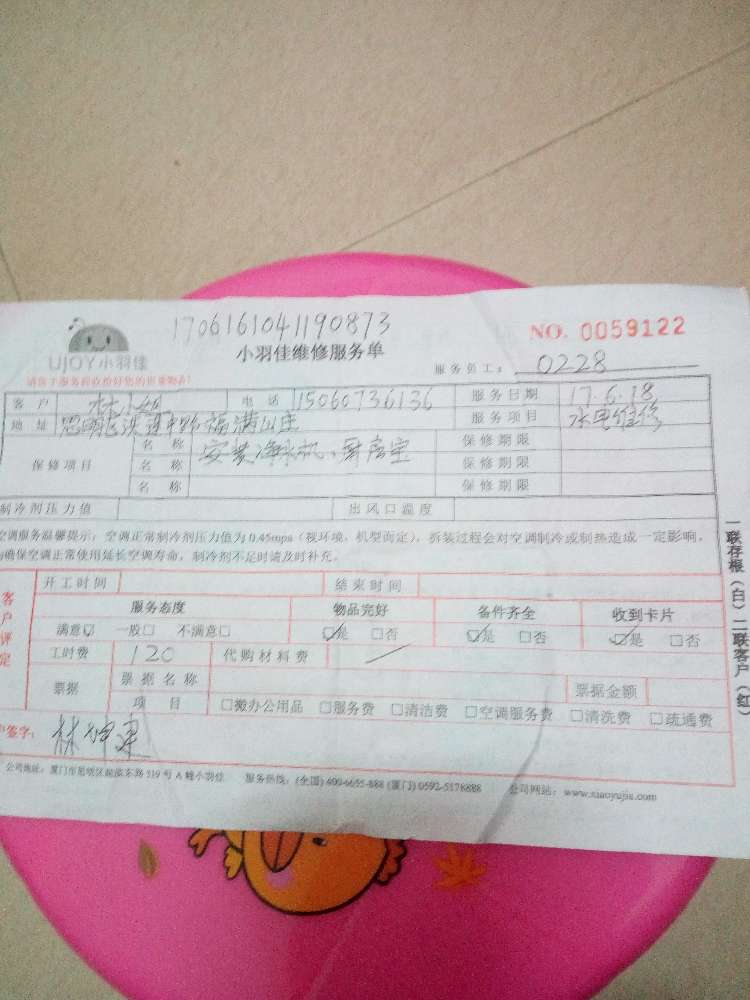 1706161041190873
NO. 0059122
UJOY小羽佳
小羽佳维修服务单
服务员工： 0228
客户 林小姐 电话 15060736136 服务日期 17.6.18
地址 思明区 福满山庄 服务项目 水电维修
保修项目 名称 安装净水机、厨房宝 保修期限
名称 保修期限
名称 保修期限
制冷剂压力值 出风口温度
空调服务温馨提示：空调正常制冷剂压力值为0.45mpa（视环境、机型而定），拆装过程会对空调制冷或制热造成一定影响，
为确保空调正常使用延长空调寿命，制冷剂不足时请及时补充。
客户评定
开工时间 结束时间
服务态度 物品完好 备件齐全 收到卡片
满意☑ 一般□ 不满意□ ☑是 □否 ☑是 □否 ☑是 □否
工时费 120 代购材料费 /
票据 票据名称 票据金额
项目 □搬办公用品 □服务费 □清洁费 □空调服务费 □清洗费 □疏通费
户签字：
公司地址：厦门市思明区 东路519号A幢小羽佳 服务热线：(全国) 400-6655-888 (厦门) 0592-5178888 公司网站：www.xiaoyujia.com
一联存根（白）二联客户（红）